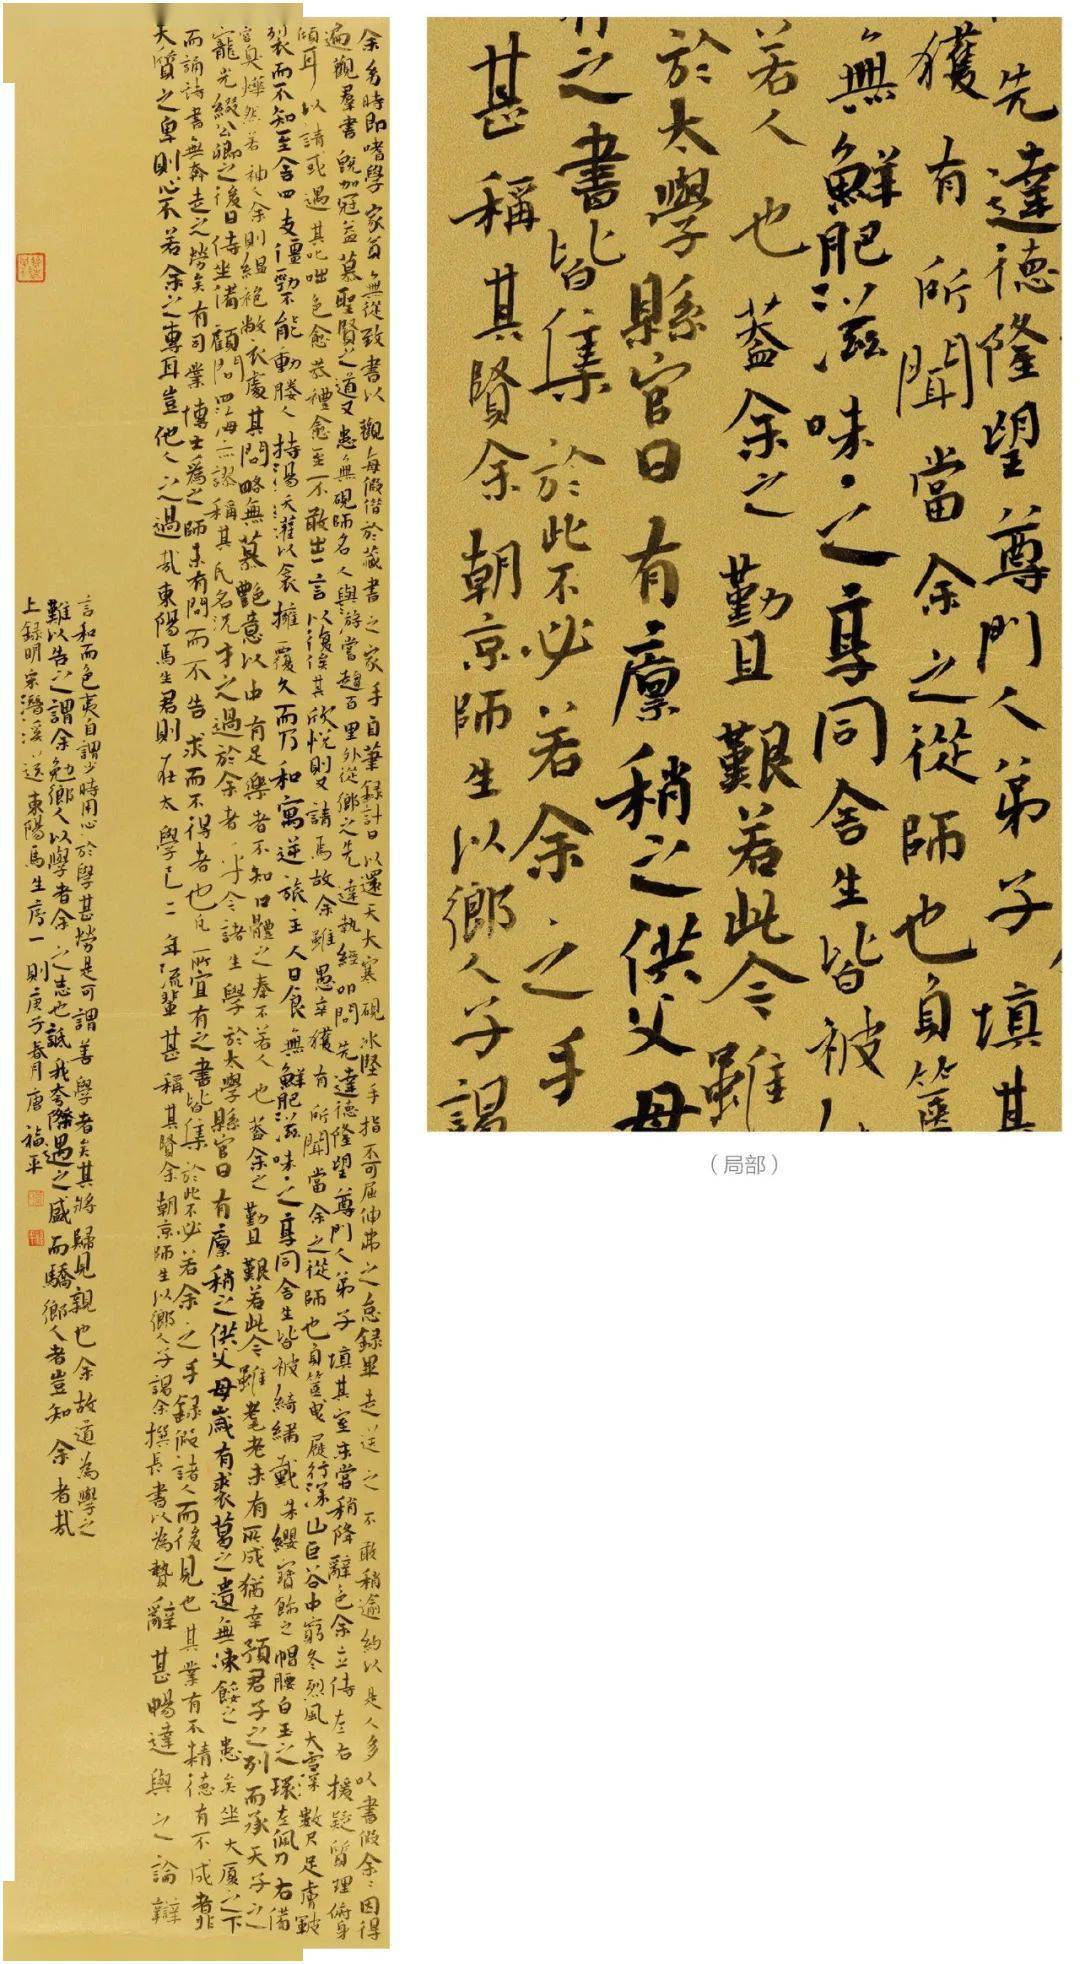 余幼時即嗜學家貧無從致書以觀每假借於藏書之家手自筆錄計日以還天大寒硯冰堅手指不可屈伸弗之怠錄畢走送之不敢稍逾約以是人多以書假余〻因得
遍觀羣書既加冠益慕聖賢之道又患無碩師名人與游嘗趨百里外從鄉之先達執經叩問先達德隆望尊門人弟子填其室未嘗稍降辭色余立侍左右援疑質理俯身
傾耳以請或遇其叱咄色愈恭禮愈至不敢出一言以復俟其欣悅則又請焉故余雖愚卒獲有所聞當余之從師也負篋曳屣行深山巨谷中窮冬烈風大雪深數尺足膚皸
裂而不知至舍四支僵勁不能動媵人持湯沃灌以衾擁覆久而乃和寓逆旅主人日食無鮮肥滋味〻之享同舍生皆被綺繡戴朱纓寶飾之帽腰白玉之環左佩刀右備
容臭燁然若神人余則縕袍敝衣處其間略無慕艷意以中有足樂者不知口體之奉不若人也蓋余之勤且艱若此今雖耄老未有所成猶幸預君子之列而承天子之
寵光綴公卿之後日侍坐備顧問四海亦謬稱其氏名況才之過於余者乎今諸生學於太學縣官日有廩稍之供父母歲有裘葛之遺無凍餒之患矣坐大廈之下
而誦詩書無奔走之勞矣有司業博士為之師未有問而不告求而不得者也凡所宜有之書皆集於此不必若余之手錄假諸人而後見也其業有不精德有不成者非
天質之卑則心不若余之專耳豈他人之過哉東陽馬生君則在太學已二年流輩甚稱其賢余朝京師生以鄉人子謁余撰長書以為贄辭甚暢達與之論辯
言和而色夷自謂少時用心於學甚勞是可謂善學者矣其將歸見親也余故道為學之
難以告之謂余勉鄉人以學者余之志也詆我夸際遇之盛而驕鄉人者豈知余者哉
上錄明宋潛溪送東陽馬生序一則庚子春月唐福平
先達德隆望尊門人弟子填其
獲有所聞當余之從師也負篋
無鮮肥滋味〻之享同舍生皆被
若人也蓋余之勤且艱若此今雖
於太學縣官日有廩稍之供父母
有之書皆集於此不必若余之手
甚稱其賢余朝京師生以鄉人子謁
（局部）